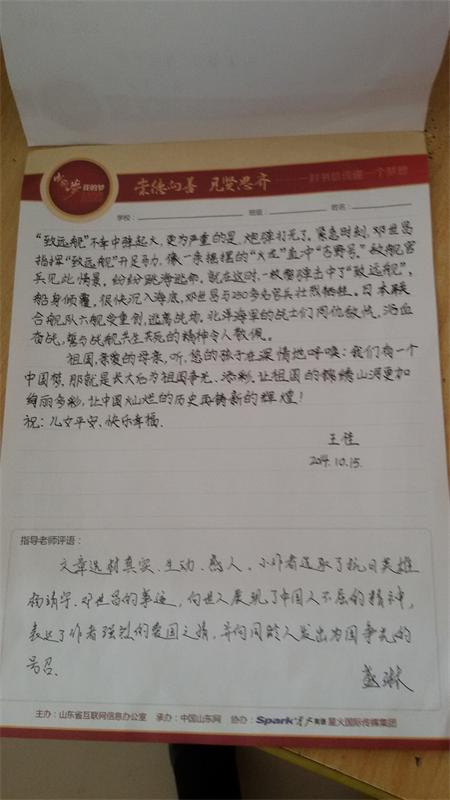 中国梦 我的梦
崇德向善 见贤思齐 一封书信传递一个梦想
学校： 班级： 姓名：
“致远舰”不幸中弹起火，更为严重的是，炮弹打光了，紧急时刻，邓世昌
指挥“致远舰”开足马力，像一条摆摆的“火龙”直冲“吉野号。”敌舰官
兵见此情景，纷纷跳海逃命，就在这时，一枚鱼弹击中了“致远舰”，
船身倾覆，很快沉入海底，邓世昌与250多名官兵壮烈牺牲。日本联
合舰队六舰受重创，逃离战场，北洋海军的战士们同仇敌忾，浴血
奋战，誓与战舰共生共死的精神令人敬佩。
祖国，亲爱的母亲，听，您的孩子在深情地呼唤：我们有一个
中国梦，那就是长大后为祖国争光、添彩，让祖国的锦绣山河更加
绚丽多彩，让中国灿烂的历史再铸新的辉煌！
祝：儿女平安、快乐幸福。
王佳
2014.10.15.
指导老师评语：
文章选材真实、生动、感人，小作者选取了抗日英雄
杨靖宇、邓世昌的事迹，向世人展现了中国人不屈的精神，
表达了作者强烈的爱国之情，并向同龄人发出为国争光的
号召。
盛淋
主办：山东省互联网信息办公室 承办：中国山东网 协办：Spark 星火英语 星火国际传媒集团